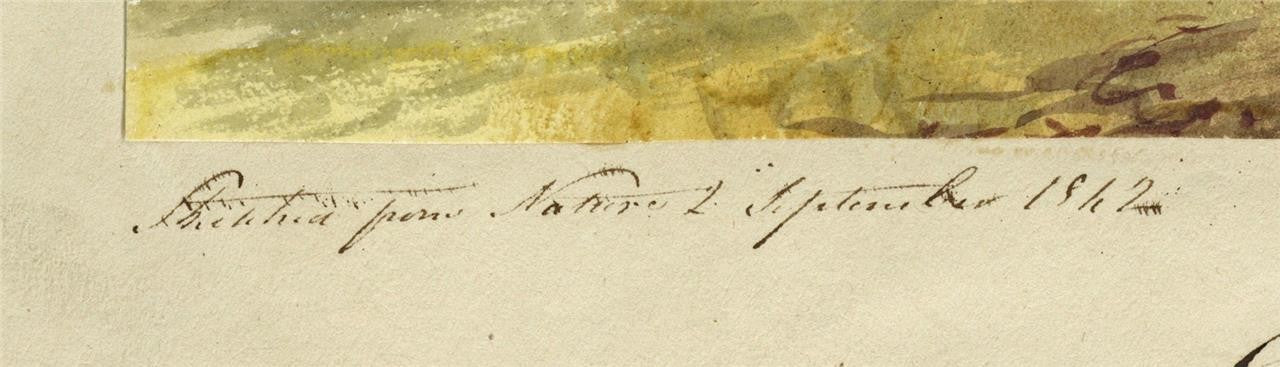 Sketched from Nature 2 September 1842